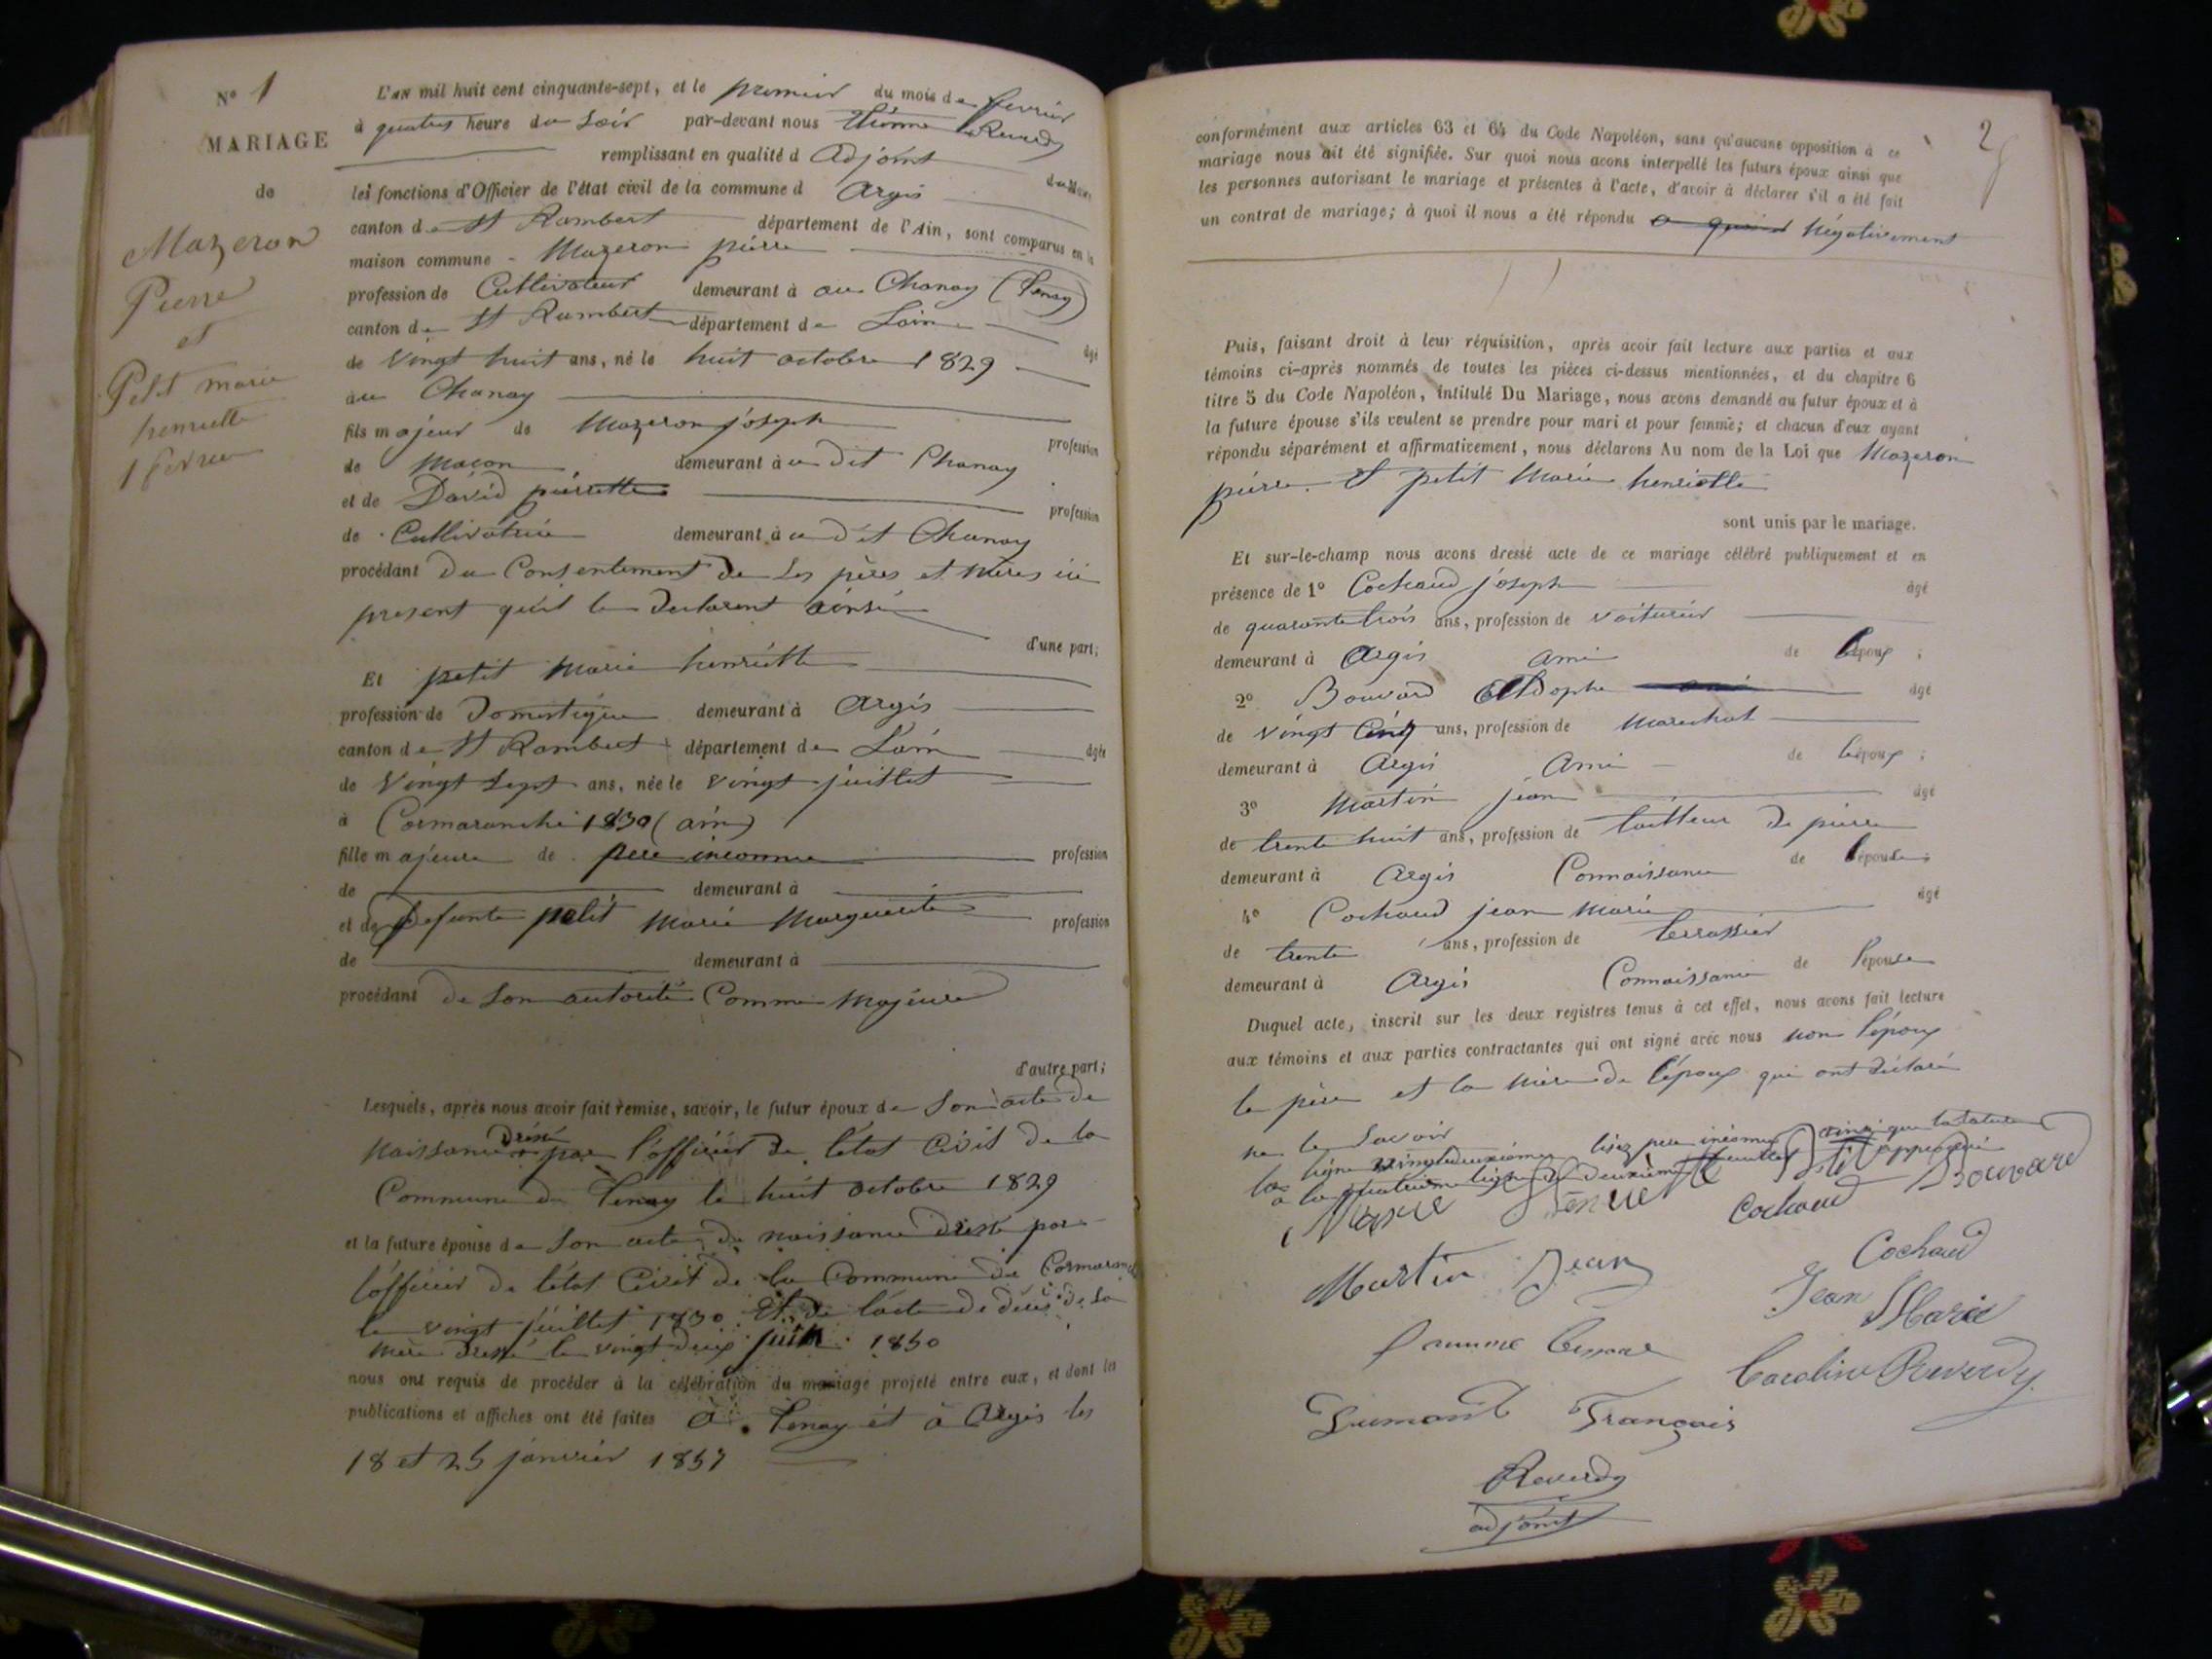 N° 1
MARIAGE
de
Mazeron
Pierre
et
Petit marie
henriette
1 fevrier
L'AN mil huit cent cinquante-sept, et le premier du mois de fevrier
à quatres heure du Soir par-devant nous Reverdy
remplissant en qualité d Adjoint
les fonctions d'Officier de l'état civil de la commune d Argis
canton de St Rambert département de l'Ain, sont comparus en la
maison commune - Mazeron pierre
profession de Cultivateur demeurant à au Chanay (Tenay)
canton de St Rambert département de Lain
âgé
de Vingt huit ans, né le huit octobre 1829
au Chanay
fils majeur de Mazeron joseph
profession
de Maçon demeurant à u dit Chanay
et de David pierrette
profession
de Cultivatrice demeurant à u dit Chanay
procédant du Consentement de Ses pères et Mères ici
present qu'il le declarent ainsi
d'une part;
Et petit Marie henriette
profession de Domestique demeurant à Argis
canton de St Rambert département de Lain âgée
de Vingt Sept ans, née le Vingt juillet
à Cormaranche 1830 (ain)
fille majeure de père inconnue profession
de demeurant à
et de Defunte petit Marie Marguerite profession
de demeurant à
procédant de Son autorité Comme Majeure
d'autre part;
Lesquels, après nous avoir fait remise, savoir, le futur époux de Son acte de
Naissance dréssé par l'officier de l'état Civil de la
Commune de Tenay le huit octobre 1829
et la future épouse de Son acte de naissance dressé par
l'officier de l'état Civil de la Commune de Cormaranche
le vingt juillet 1830. Et de l'acte de décès de Sa
Mère dressé le vingt deux juin 1850
nous ont requis de procéder à la célébration du mariage projeté entre eux, et dont les
publications et affiches ont été faites à Tenay et à Argis les
18 et 25 janvier 1857
2
conformément aux articles 63 et 64 du Code Napoléon, sans qu'aucune opposition à ce
mariage nous ait été signifiée. Sur quoi nous avons interpellé les futurs époux ainsi que
les personnes autorisant le mariage et présentes à l'acte, d'avoir à déclarer s'il a été fait
un contrat de mariage; à quoi il nous a été répondu Négativement
Puis, faisant droit à leur réquisition, après avoir fait lecture aux parties et aux
témoins ci-après nommés de toutes les pièces ci-dessus mentionnées, et du chapitre 6
titre 5 du Code Napoléon, intitulé Du Mariage, nous avons demandé au futur époux et à
la future épouse s'ils veulent se prendre pour mari et pour femme; et chacun d'eux ayant
répondu séparément et affirmativement, nous déclarons Au nom de la Loi que Mazeron
pierre. Et petit Marie henriette
sont unis par le mariage.
Et sur-le-champ nous avons dressé acte de ce mariage célébré publiquement et en
présence de 1° Cochaud joseph âgé
de quarante trois ans, profession de Voiturier
demeurant à Argis Ami de l'époux ;
2° Bouvard âgé
de Vingt Cinq ans, profession de Marechal
demeurant à Argis Ami de l'époux ;
3° Martin jean âgé
de trente huit ans, profession de tailleur de pierre
demeurant à Argis Connaissance de l'épouse ;
4° Cochaud jean Marie âgé
de trente ans, profession de terrassier
demeurant à Argis Connaissance de l'épouse
Duquel acte, inscrit sur les deux registres tenus à cet effet, nous avons fait lecture
aux témoins et aux parties contractantes qui ont signé avec nous non l'époux
le père et la Mère de l'époux qui ont déclaré
ne le Savoir
la ligne vingtdeuxième lisez père inconnu ainsi que la rature
à la quatrième ligne deuxième feuillet approuvé
Marie Henriette Petit Bouvard
Cochaud
Martin Jean
Cochaud
Jean Marie
Caroline Reverdy
Dumont François
Reverdy
adjoint